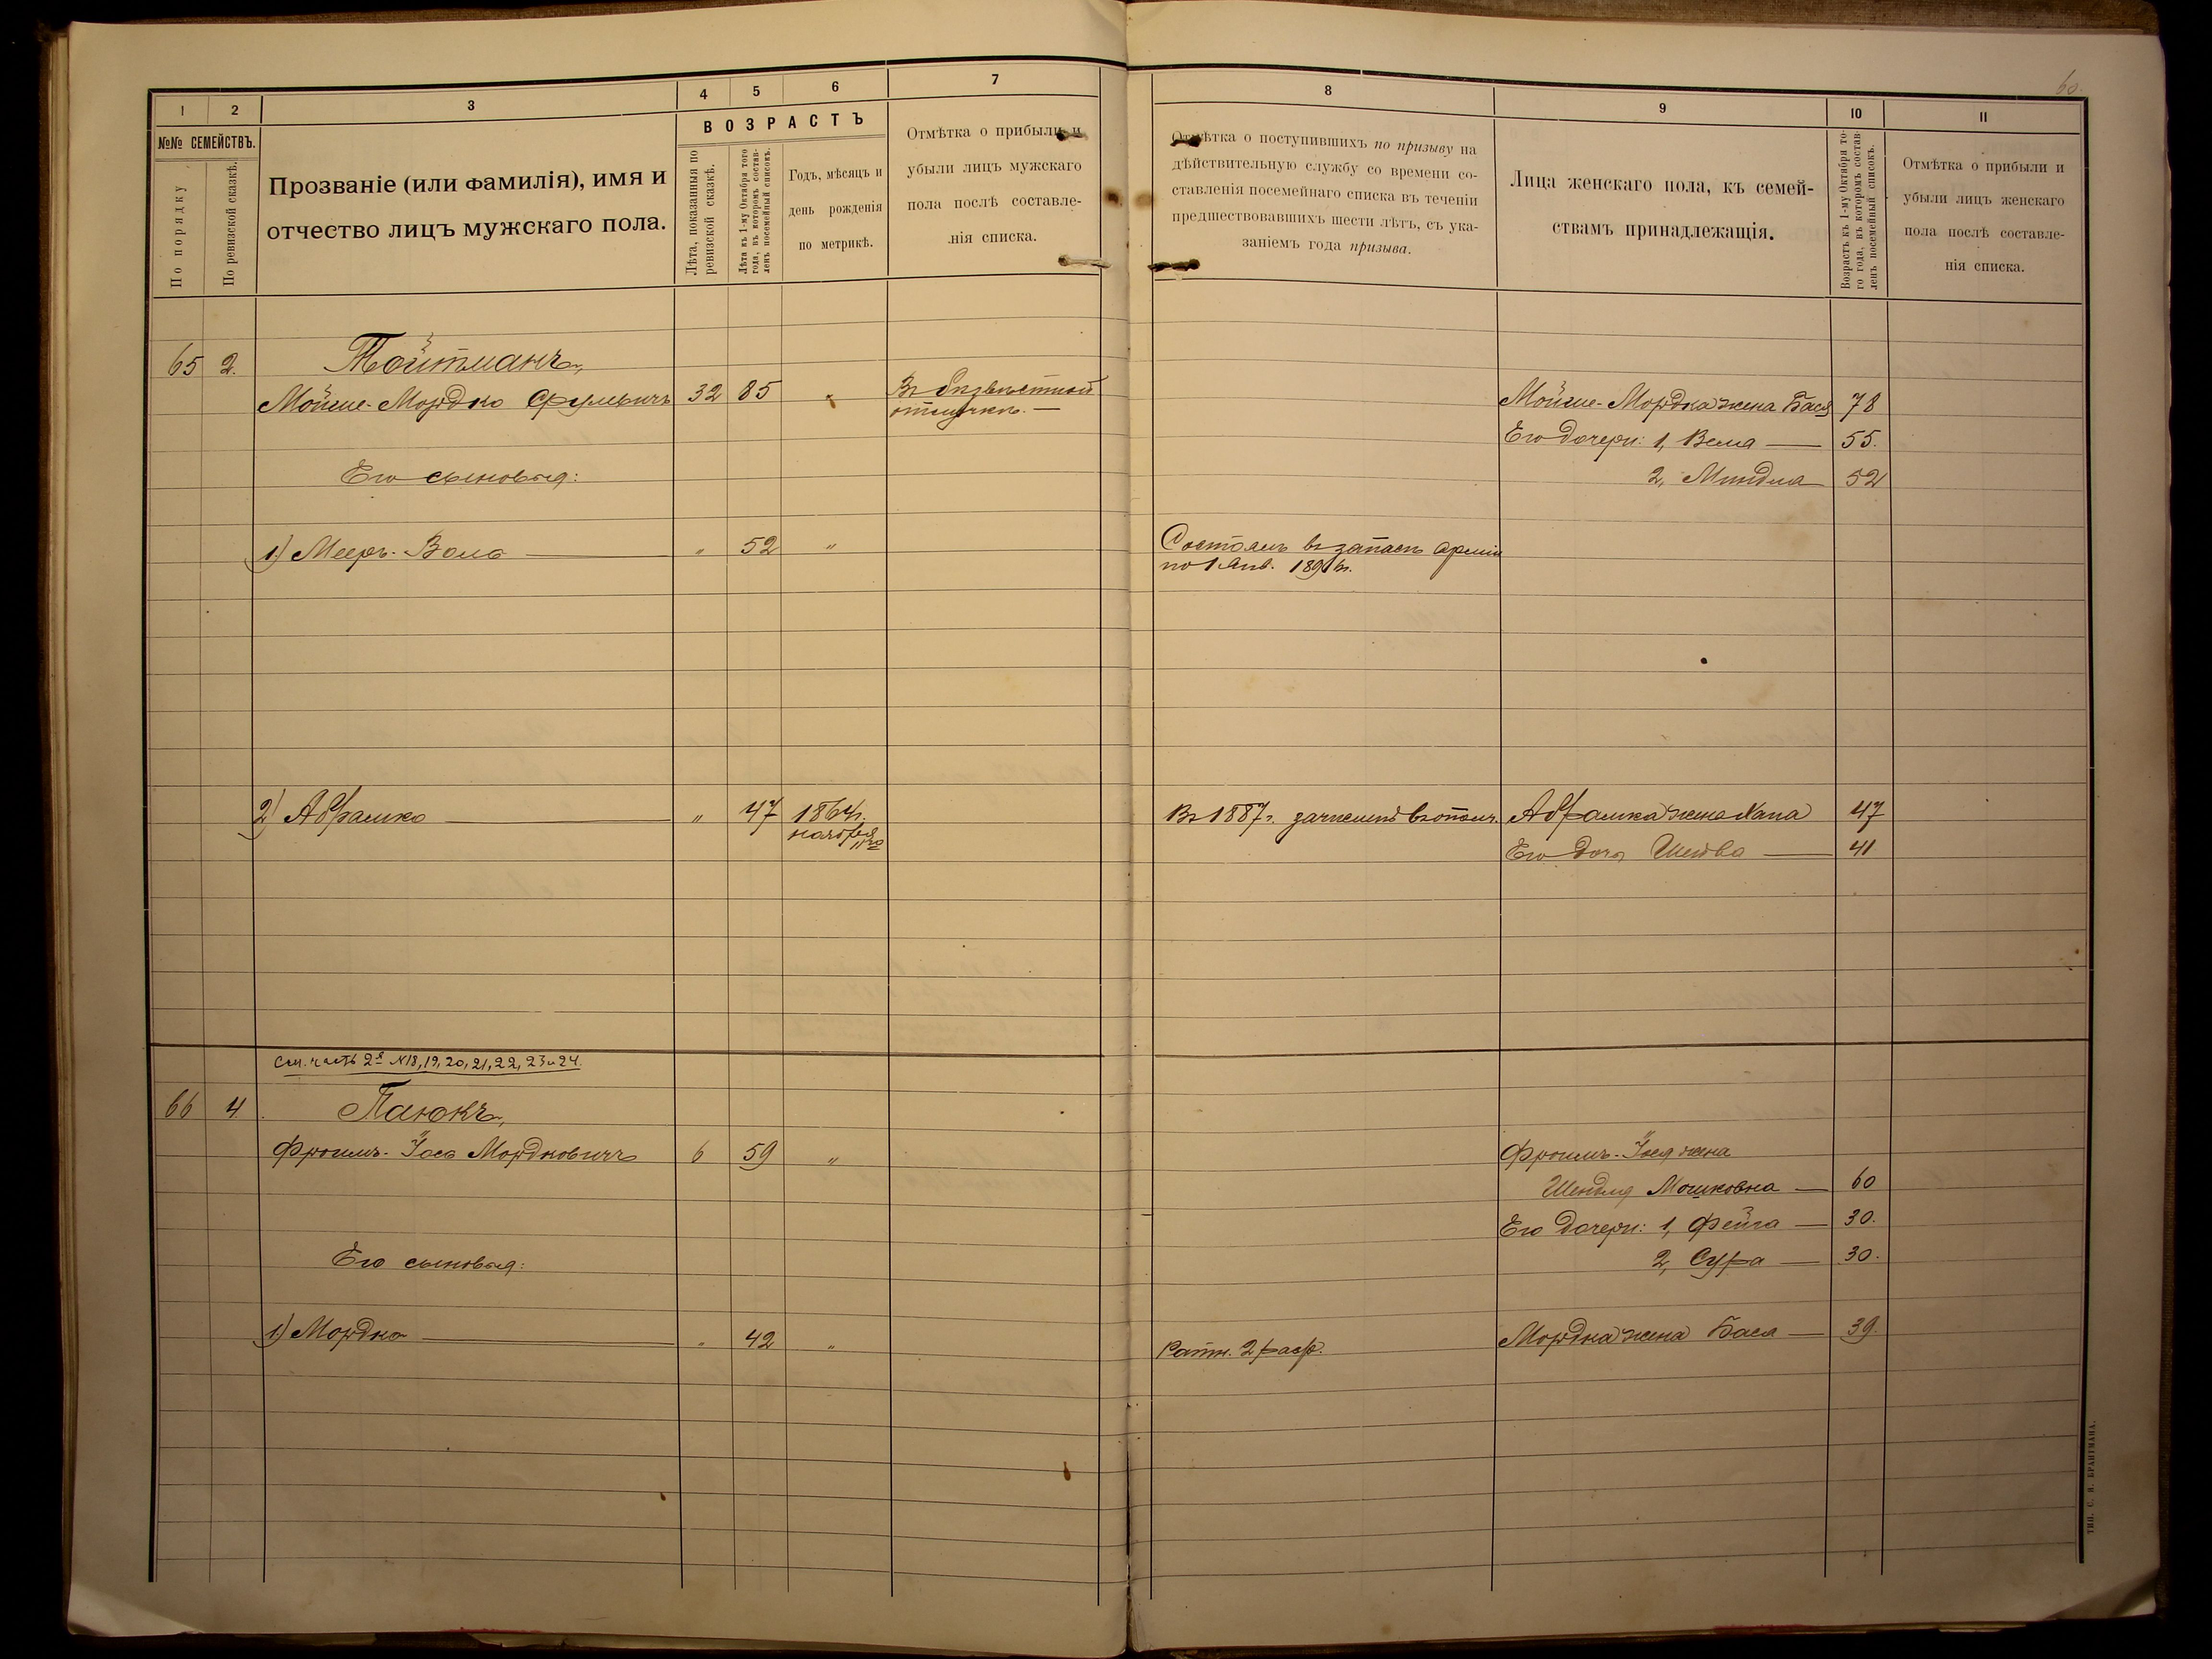 60.
1 2 3 4 5 6 7
№№ СЕМЕЙСТВЪ.
По порядку
По ревизской сказкѣ.
Прозваніе (или фамилія), имя и
отчество лицъ мужскаго пола.
ВОЗРАСТЪ
Лѣта, показанныя по
ревизской сказкѣ.
Лѣта къ 1-му Октября того
года, въ которомъ состав-
ленъ посемейный списокъ.
Годъ, мѣсяцъ и
день рожденія
по метрикѣ.
Отмѣтка о прибыли и
убыли лицъ мужскаго
пола послѣ составле-
нія списка.
65 2. Тойтманъ,
Мойше-Мордко Срулевичъ 32 85 " Въ безвѣстной
отлучкѣ. —
Его сыновья:
1) Мееръ-Волъ — " 52 "
2) Абрамко — " 47 1864г.
ноября
См. часть 2ю №18, 19, 20, 21, 22, 23 и 24.
66 4. Паюкъ,
Фроимъ-Іосъ Мордковичъ 6 59 "
Его сыновья:
1) Мордко — " 42 "
8 9 10 11
Отмѣтка о поступившихъ по призыву на
дѣйствительную службу со времени со-
ставленія посемейнаго списка въ теченіи
предшествовавшихъ шести лѣтъ, съ ука-
заніемъ года призыва.
Лица женскаго пола, къ семей-
ствамъ принадлежащія.
Возрастъ къ 1-му Октября то-
го года, въ которомъ состав-
ленъ посемейный списокъ.
Отмѣтка о прибыли и
убыли лицъ женскаго
пола послѣ составле-
нія списка.
Мойше-Мордка жена Бася 78
Его дочери: 1, Вела — 55.
2, Миндля — 52
Состоялъ въ запасѣ арміи
по 1 Янв. 1891 г.
Въ 1887г. зачисленъ въ ополч. Абрамка жена Хана 47
Его дочь Шейва — 41
Фроимъ-Іося жена
Шендля Мошковна — 60
Его дочери: 1, Фейга — 30.
2, Сура — 30.
Ратн. 2 разр. Мордка жена Бася — 39.
ТИП. С. Н. БРАНТМАНА.